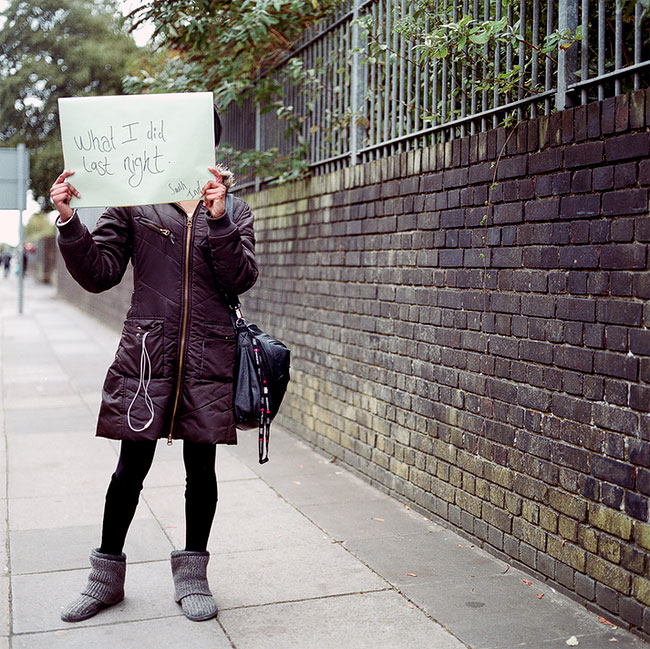 What I did
last night.